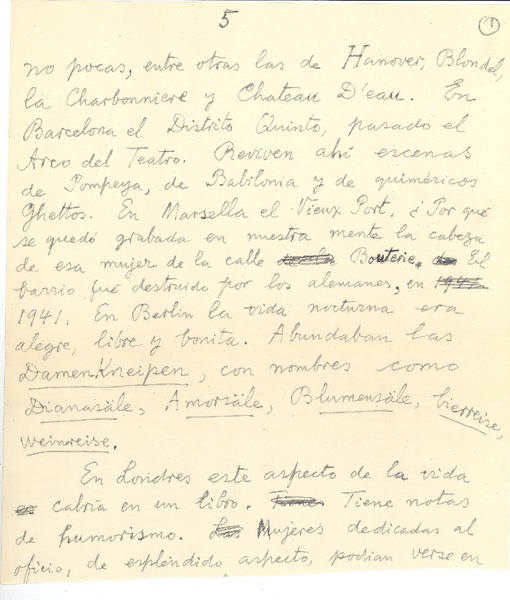 5 1
no pocas, entre otras las de Hanover, Blondel,
la Charbonniere y Chateau D'eau. En
Barcelona el Distrito Quinto, pasado el
Arco del Teatro. Reviven ahí escenas
de Pompeya, de Babilonia y de quiméricos
Ghettos. En Marsella el Vieux Port. ¿Por qué
se quedó grabada en nuestra mente la cabeza
de esa mujer de la calle Bouterie. El
barrio fué destruido por los alemanes, en 1942
1941. En Berlin la vida nocturna era
alegre, libre y bonita. Abundaban las
DamenKneipen, con nombres como
Dianasäle, Amorsäle, Blumensäle, bierreise,
weinreise.
En Londres este aspecto de la vida
es cabría en un libro. Tiene Tiene notas
de humorismo. Las Mujeres dedicadas al
oficio, de espléndido aspecto, podian verse en